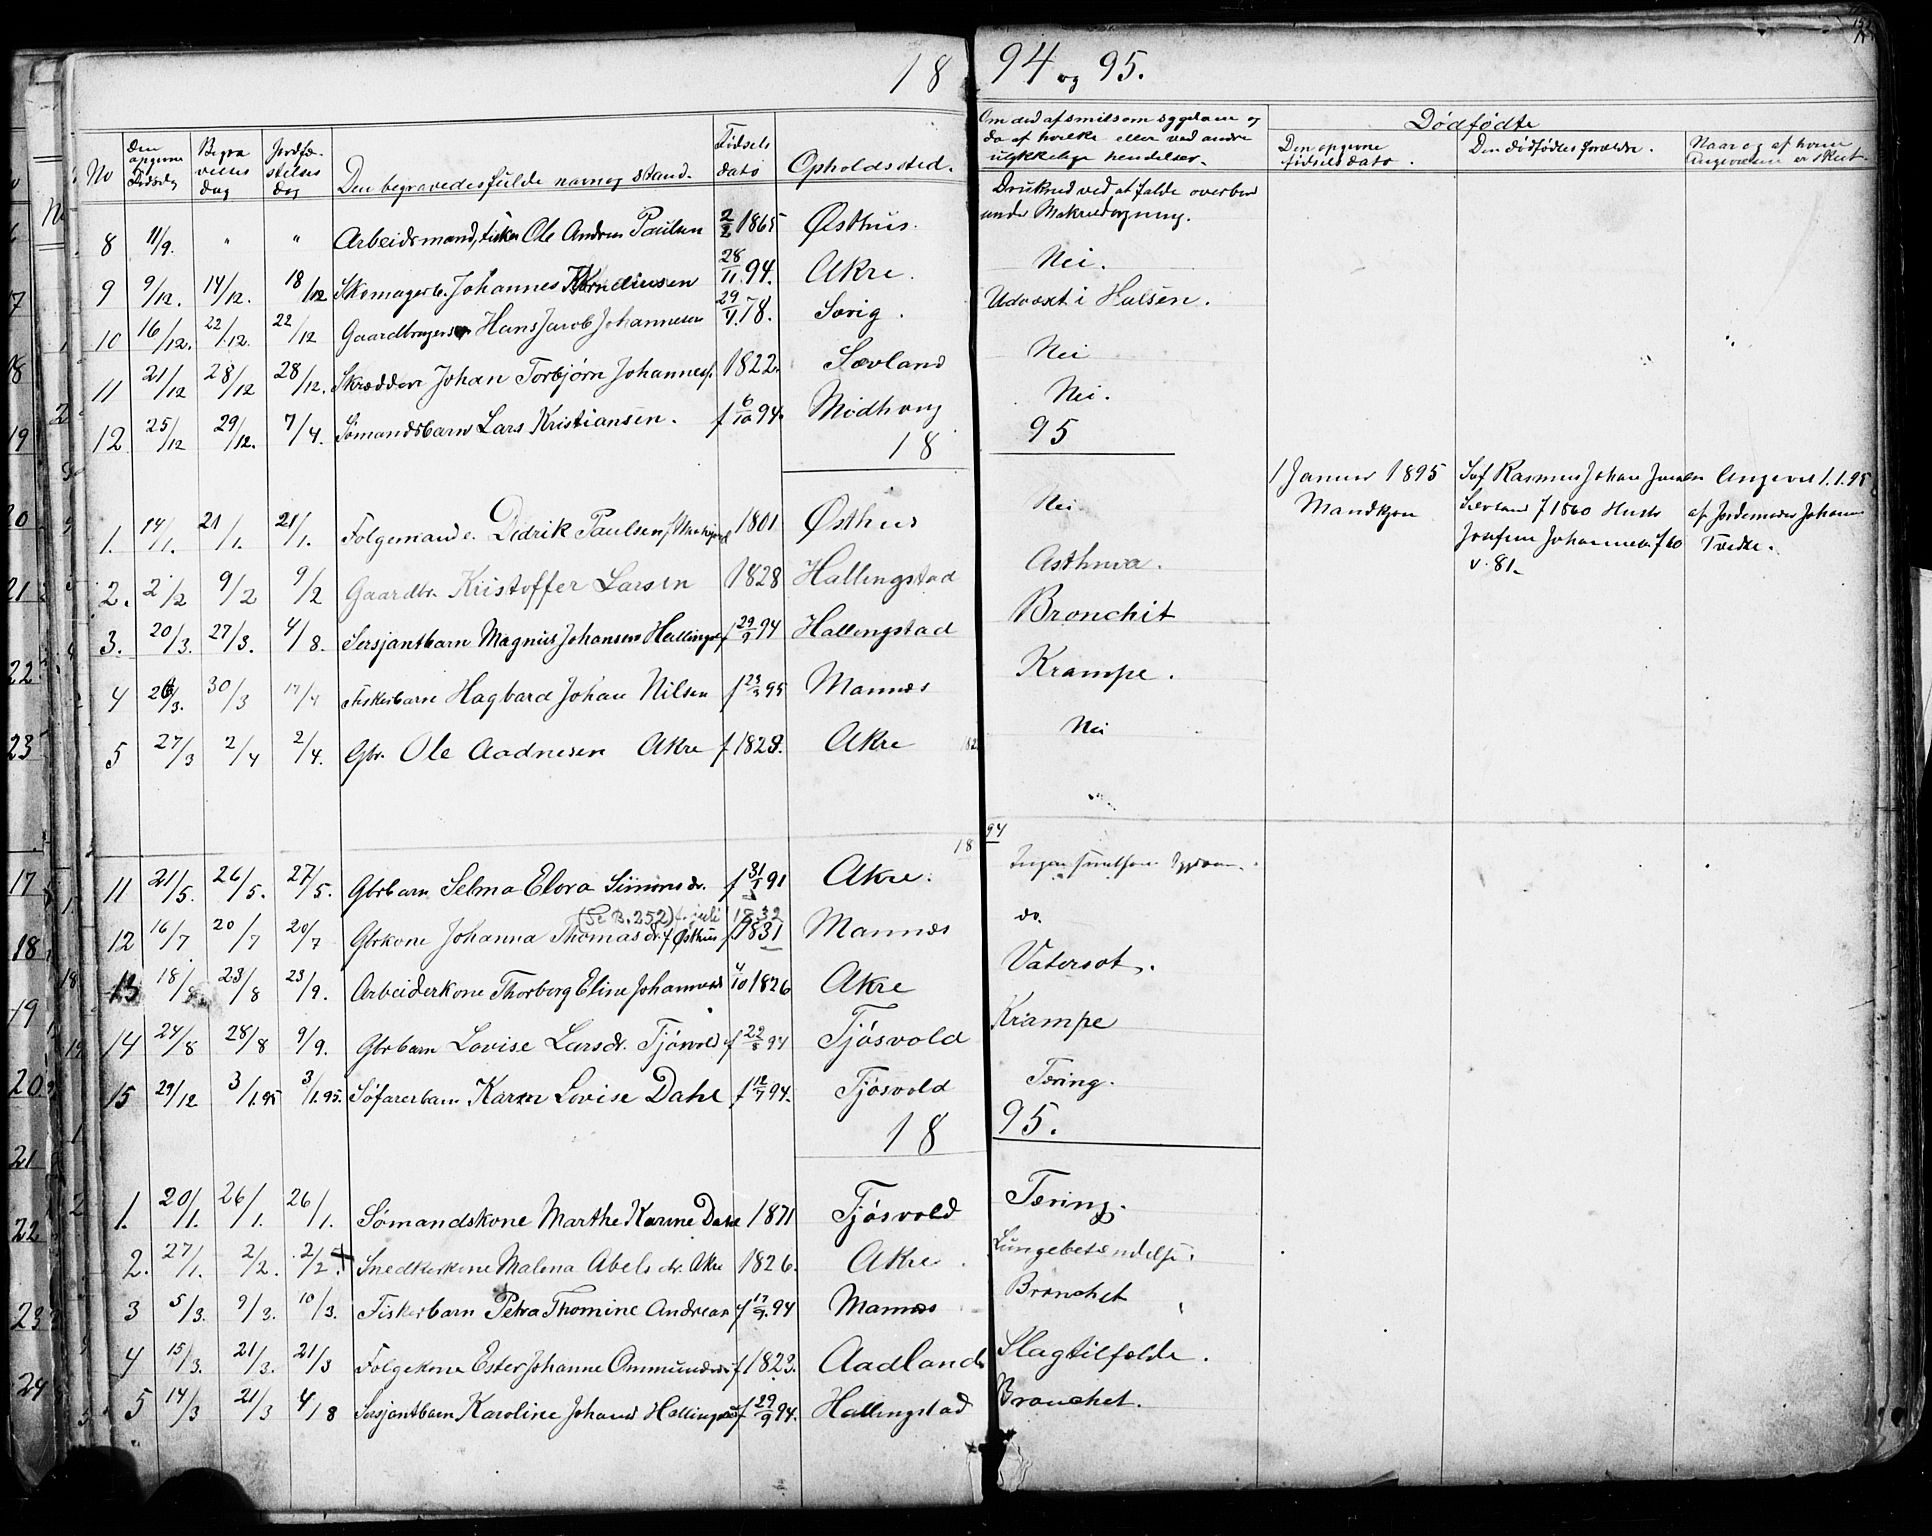 18 94 og 95.
No Den opgivne Dødsdag Begravelses dag Jordfæstelses dag Den begravedes fulde navn og stand. Fødsels dato Opholdssted. Om død af smitsom sygdom og da af hvilke eller ved andre ulykkelige hendelser. Dødfødte
Den opgivne fødsels dato. Den dødfødtes forældre. Naar og af hvem Angivelsen er skeet
8 11/9. " " Arbeidsmand, fisker Ole Andreas Paulsen 2/2 1865 Østhus. Druknet ved at falde overbord under Makreldorgning.
9 9/12. 14/12. 18/12 Skomagerb. Johannes Kornelius­sen 28/11. 94. Akre. Nei.
10 16/12. 22/12. 22/12 Gaardbrugersøn Hans Jacob Johannesen 29/1. 78. Sævig. Udvæxt i Halsen.
11 21/12 28/12 28/12. Skrædder Johan Torbjørn Johannes. 1822. Sævland Nei
12 25/12 29/12. 7/4. Sømandsbarn Lars Kristiansen. f 6/10 94. Medhaug Nei.
18 95
1 Januar 1895 Mandkjøn
Sof Rasmus Johan Jensen
Sævland f 1860 Hustr
Josefine Johannesd. f 60
v. 81.
Angivet 1.1.95
af Jordemoder Johanne
Tveder.
1. 14/1. 21/1. 21/1. Folgemand e. Didrik Paulsen 1801 Østhus Nei.
2. 2/2 9/2 9/2 Gaardbr. Kristoffer Larsen 1828 Hallingstad Asthma.
3. 20/3. 27/3. 4/8. Sersjantbarn Magnus Johansen Hallingst. f 29/9 94 Hallingstad Bronchit
4 26/3. 30/3 17/4 Fiskerbarn Hagbard Johan Nilsen f 23/3 95 Mannes Krampe.
5 27/3 2/4 2/4. Gbr. Ole Aadnesen Akre f 1829. Akre Nei
18 94
11 21/5. 26/5. 27/5. Gbrbarn Selma Elora Simonsdr. f 31/1 91 Akre. Ingen smitsom Sygdom.
(Se B. 252) f. juli 1832
12 16/7 20/7 20/7 Gbrkone Johanna Thomasdr. f Østhus f 1831 Mannes do.
13 18/8 23/8 23/9. Arbeiderkone Thorborg Eline Johannesd 4/10 1826 Akre Vatersot.
14 24/8 28/8 9/9. Gbrbarn Lovise Larsdr. Tjøsvold f 22/8 94 Tjøsvold Krampe
15 29/12 3/1.95 3/1.95. Søfarerbarn Karen Lovise Dahl f 12/7 94. Tjøsvold Tæring.
18 95.
1. 20/1. 26/1. 26/1. Sømandskone Marthe Karine Dahl 1871 Tjøsvold Tæring.
2. 27/1. 2/2. 2/2. Snedkerkone Malena Abelsdr. Akre 1826. Akre. Lungebetændelse.
3 5/3. 9/3. 10/3. Fiskerbarn Petra Thomine Andreas f 17/9. 94 Mannes Bronchet
4 15/3. 21/3. 21/3 Folgekone Ester Johanne Ommundsd. f 1823. Aadland Slagtilfelde.
5 14/3 21/3 4/8 Sersjantbarn Karoline Johansd Hallingstad f 29/9 94. Hallingstad Bronchet.